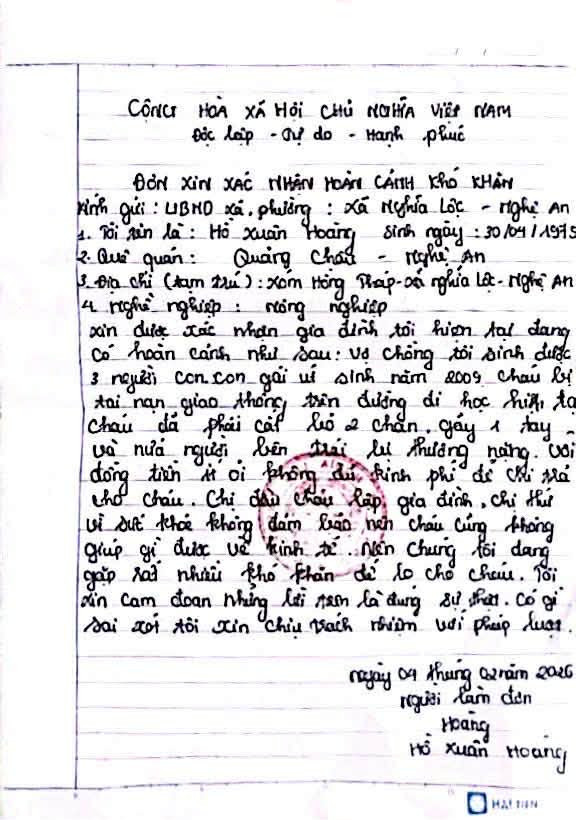 CỘNG HOÀ XÃ HỘI CHỦ NGHĨA VIỆT NAM
Độc lập - Tự do - Hạnh phúc
ĐƠN XIN XÁC NHẬN HOÀN CẢNH KHÓ KHĂN
Kính gửi : UBND xã, phường : xã Nghĩa Lộc - Nghệ An
1. Tôi tên là : Hồ Xuân Hoàng sinh ngày : 30/04/1975
2. Quê quán : Quảng Châu - Nghệ An
3. Địa chỉ (tạm trú) : Xóm Hồng Tháp - xã nghĩa Lộc - Nghệ An
4. Nghề nghiệp : nông nghiệp
xin được xác nhận gia đình tôi hiện tại đang
có hoàn cảnh như sau : vợ chồng tôi sinh được
3 người con. con gái út sinh năm 2009 cháu bị
tai nạn giao thông trên đường đi học hiện tại
cháu đã phải cắt bỏ 2 chân, gãy 1 tay
và nửa người bên trái bị thương nặng. với
đồng tiền ít ỏi không đủ kinh phí để chi trả
cho cháu. Chị đầu cháu lập gia đình, chị thứ
vì sức khoẻ không đảm bảo nên cháu cũng không
giúp gì được về kinh tế. Nên chúng tôi đang
gặp rất nhiều khó khăn để lo cho cháu. Tôi
xin cam đoan những lời trên là đúng sự thật. Có gì
sai xót tôi xin chịu trách nhiệm với pháp luật.
ngày 04 tháng 02 năm 2026
Người làm đơn
Hoàng
Hồ Xuân Hoàng
HẢI TIẾN